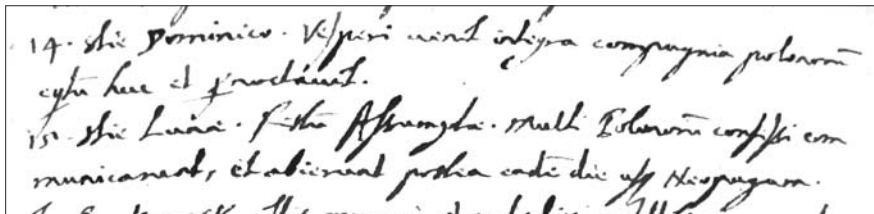 14. die Dominico. Vesperi venit integra compagnia polonorũ
equitũ huc et ꝑnoctavit.
15. die Lunæ. Festũ Assumptæ. Multi Polonorũ confessi com
municarunt, et abierunt postea eadẽ die usq Neopragam.